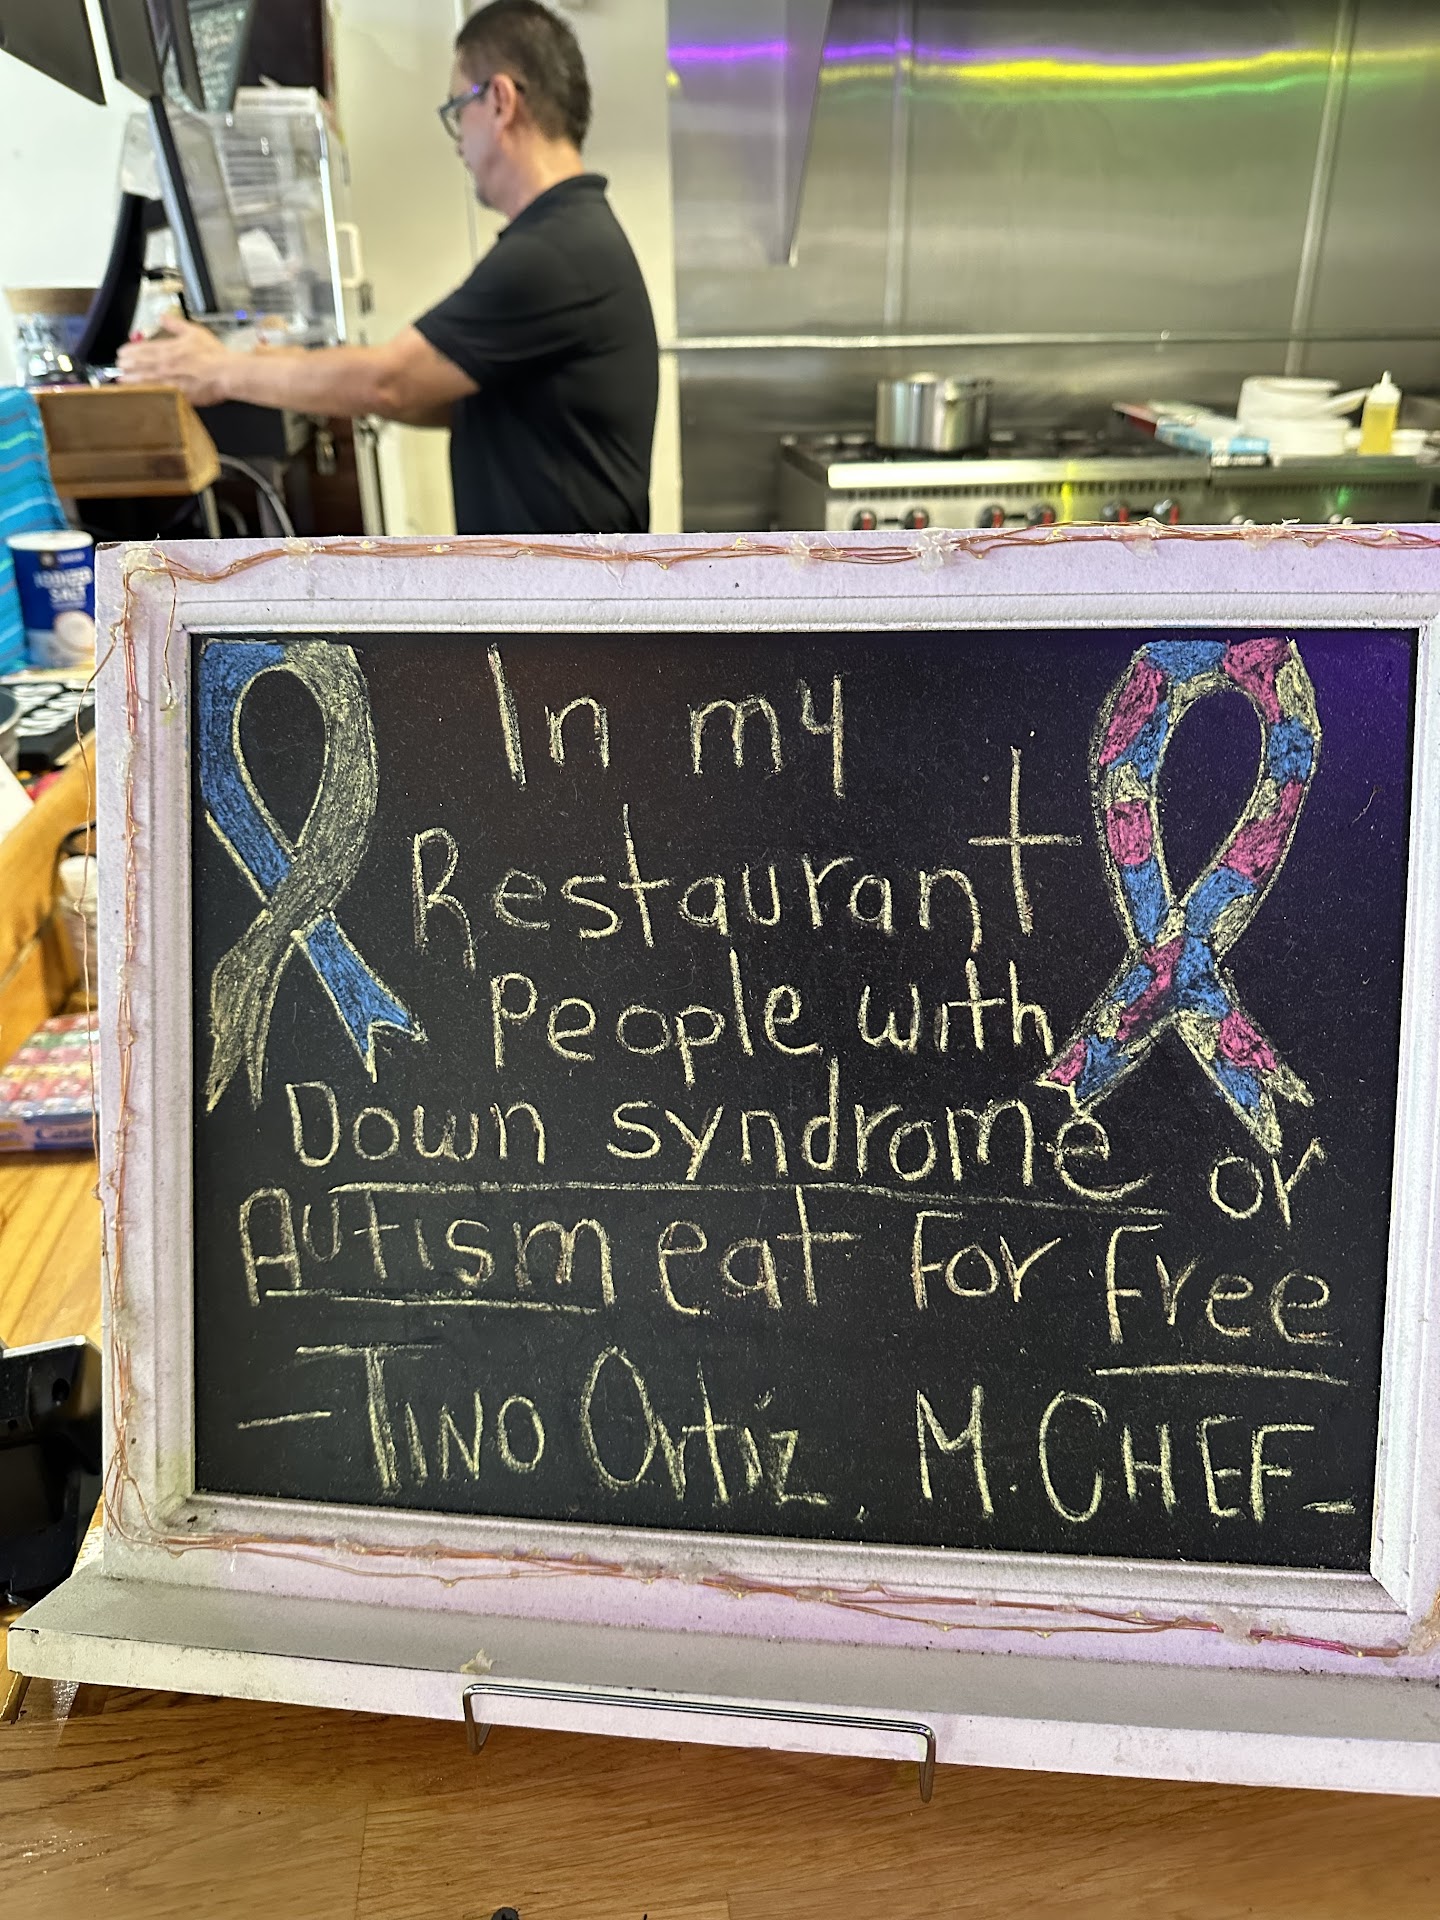 In my
Restaurant
People with
Down syndrome or
Autism eat For Free
- Tino Ortiz. M. CHEF -
IODIZED
SALT